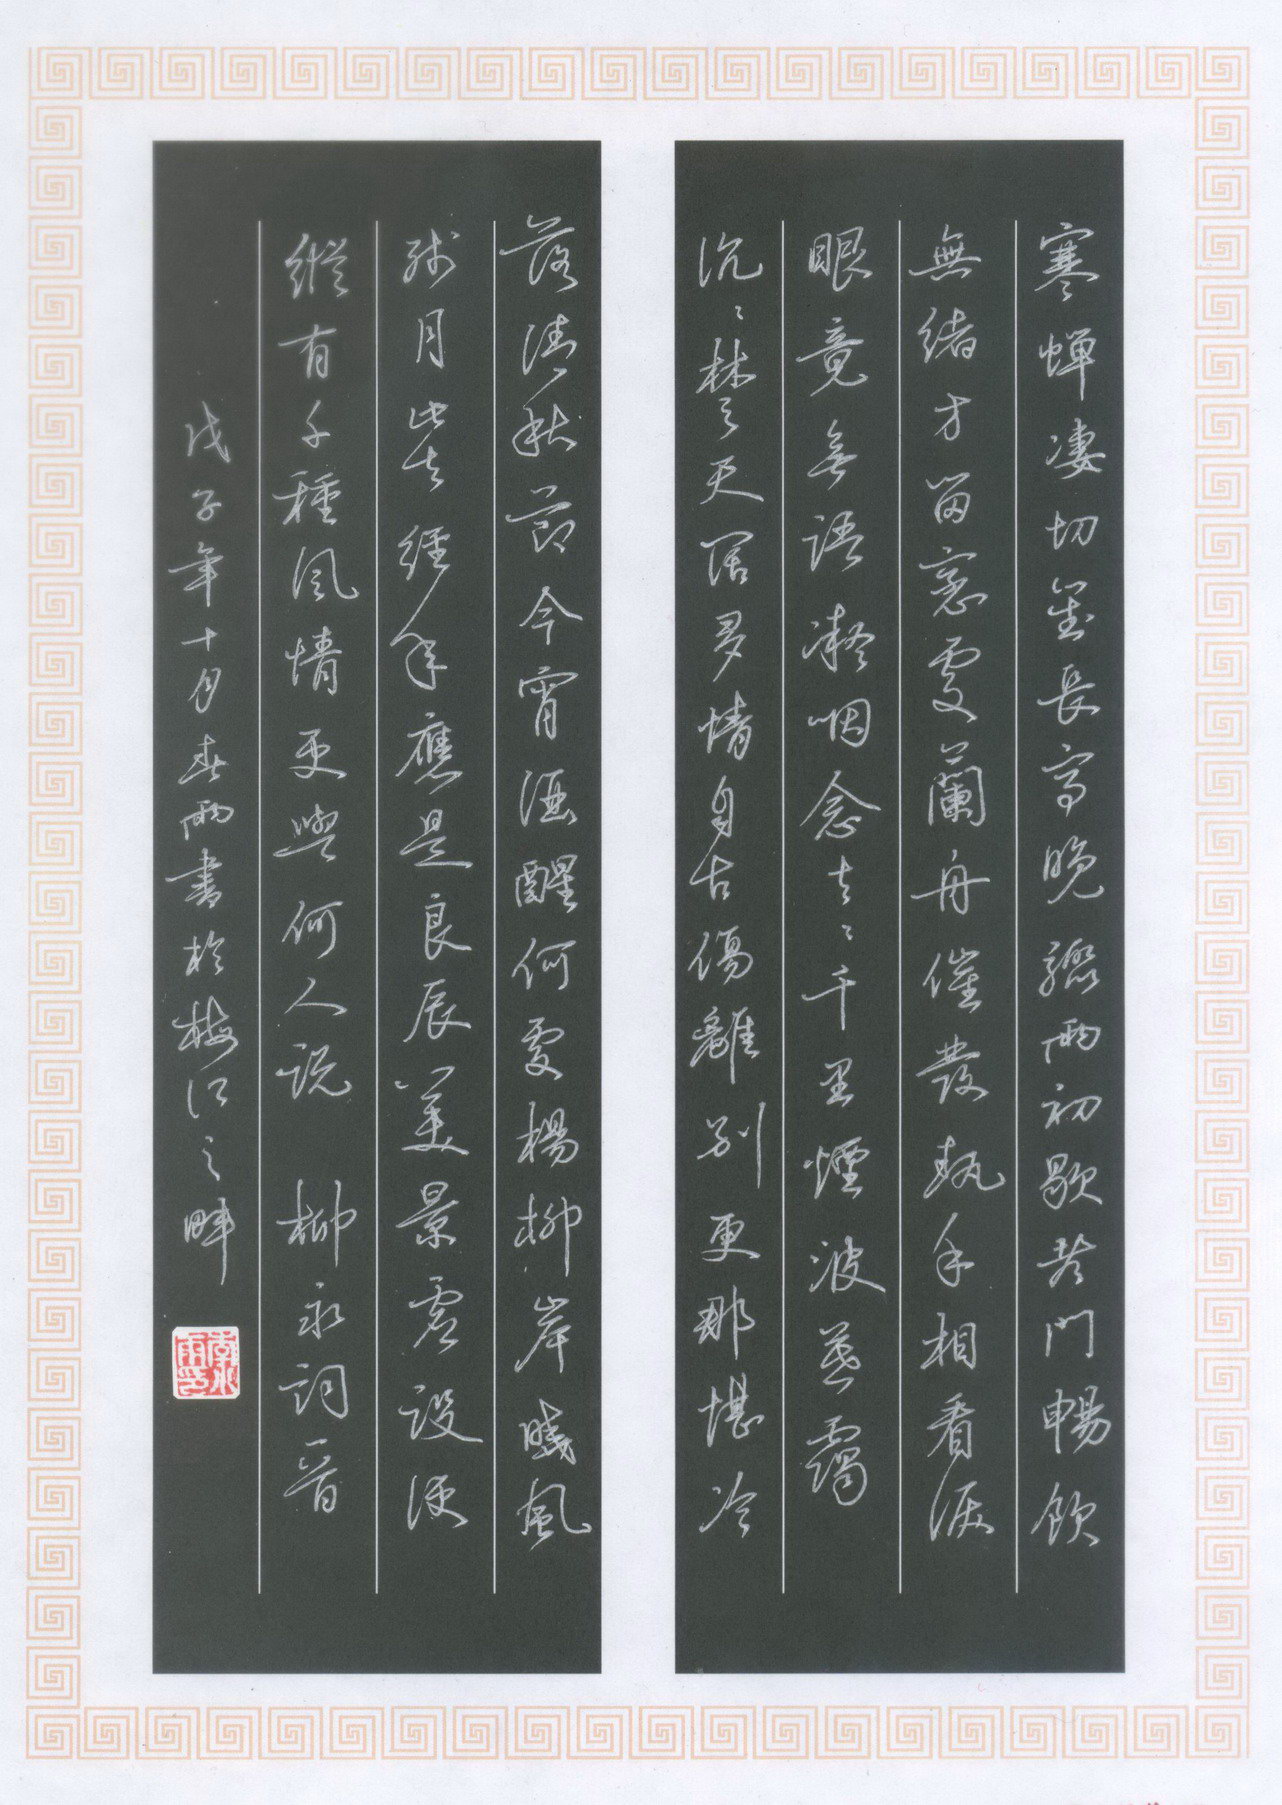 寒蟬凄切對長亭晚驟雨初歇都門暢飲
無緒方留戀處蘭舟催發執手相看淚
眼竟無語凝咽念去々千里煙波暮靄
沉々楚天闊多情自古傷離別更那堪冷
落清秋節今宵酒醒何處楊柳岸曉風
殘月此去經年應是良辰美景虛設便
縱有千種風情更與何人說 柳永詞一首
戊子年十月春雨書於梅江之畔